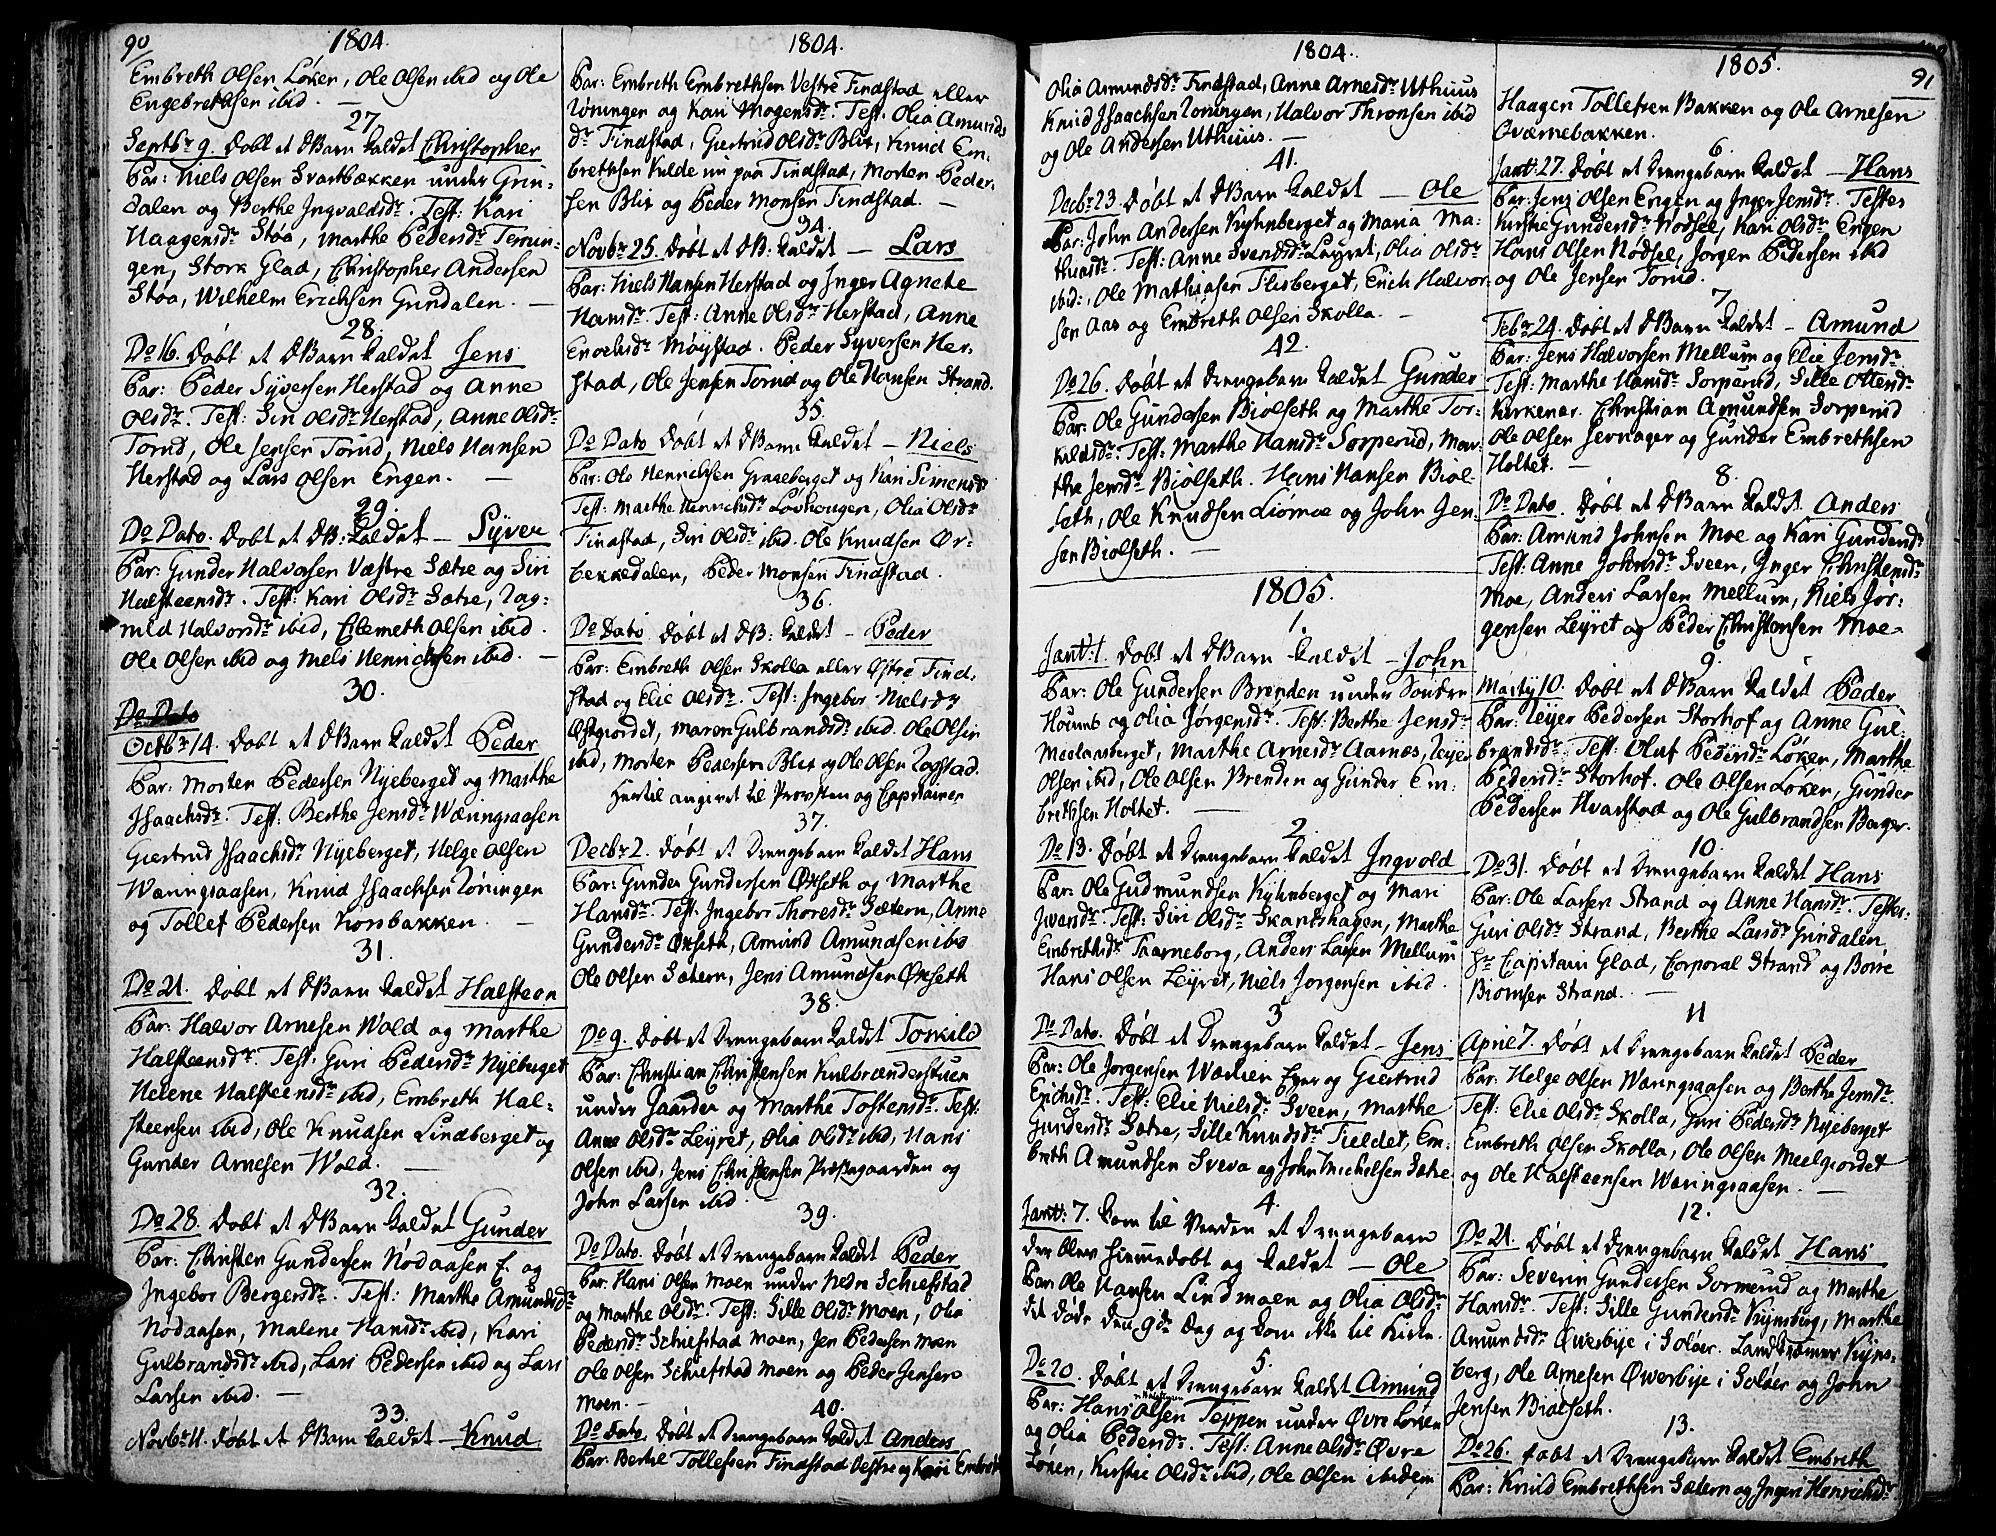 90
1804.
Embreth Olsen Løken, Ole Olsen ibid og Ole
Engebrethsen ibid.
27.
Septbr 9. Døbt et DBarn kaldet Christopher
Par: Niels Olsen Svartbækken under Grin-
dalen og Berthe Ingvaldsdr. Test: Kari
Haagensdr Støa, Marthe Pedersdr
gen, Stork Glad, Christopher Andersen
Støa, Wilhelm Erichsen Grindalen.
28.
Do 16. Døbt et DBarn kaldet Jens
Par: Peder Syversen Herstad og Anne
Olsdr. Test: Siri Olsdr Herstad, Anne Olsdr
Torud, Ole Jensen Torud, Niels Hansen
Herstad og Lars Olsen Engen.
29.
Do Dato. Døbt et DB: kaldet - Syver
Par: Gunder Halvorsen Væstre Sætre og Siri
Halsteensdr. Test: Kari Olsdr Sætre, Rag-
nild Halvorsdr ibid, Olsen ibid.
Ole Olsen ibid og Niels Henrichsen ibid.
30.
Do Dato
Octbr 14. Døbt et DBarn kaldet Peder
Par: Morten Pedersen Nyeberget og Marthe
Isaachsdr. Test: Berthe Jensdr Wæringsaasen
Giertrud Isaachsdr Nyeberget, Helge Olsen
Wæringsaasen, Knud Isaachsen Løningen
og Tollef Pedersen Korsbakken.
31.
Do 21. Døbt et DBarn kaldet Halsteen
Par: Halvor Arnesen Wold og Marthe
Halsteensdr. Test: Guri Pedersdr Nyeberget
Helene Halsteensdr ibid, Embreth Hal-
steensen ibid, Ole Knudsen Lindberget og
Gunder Arnesen Wold.
32.
Do 28. Døbt et DBarn kaldet Gunder
Par: Christen Gundersen Nødaasen E. og
Ingebor Bergersdr. Test: Marthe Amundsdr
Nødaasen, Malene Hansdr ibid, Kari
Gulbrandsdr ibid, Lars Pedersen ibid og Lars
Larsen ibid.
33.
Novbr 11. Døbt et DBarn kaldet - Knud
1804.
Par: Embreth Embrethsen Vestre Findstad eller
Løningen og Kari Mogensdr. Test. Olia Amunds
dr Findstad, Giertrud Olsdr Blix, Knud Em-
brethsen Kulde nu paa Findstad, Morten Peder-
sen Blix og Peder Monsen Findstad.
34.
Novbr 25. Døbt et DB: kaldet - Lars
Par: Niels Hansen Herstad og Inger Agnete
Hansdr. Test: Anne Olsdr Herstad, Anne
Enochsdr Møystad. Peder Syversen Her-
stad, Ole Jensen Torud og Ole Hansen Strand.
35.
Do Dato Døbt et DBarn kaldet - Niels
Par: Ole Henrichsen Graaberget og Kari Simensdr
Test: Marthe Henrichsdr Løvhougen, Olia Olsdr
Findstad, Siri Olsdr ibid. Ole Knudsen Ør-
bekkedalen, Peder Monsen Findstad.
36.
Do Dato Døbt et DB: kaldet - Peder
Par: Embreth Olsen Skolla eller Østre Find-
stad og Elie Olsdr. Test: Ingebor Nielsdr
Østgiordet, Maren Gulbrandsdr ibid. Ole Olsen
ibid, Morten Pedersen Blix og Ole Olsen Rogstad.
Hertil angivet til Provsten og Capitainen
37.
Decbr 2. Døbt et Drengebarn kaldet Hans
Par: Gunder Gundersen Øxseth og Marthe
Hansdr. Test: Ingebor Thoresdr Sætern, Anne
Gundersdr Øxseth, Amund Amundsen ibid
Ole Olsen Sætern, Jens Amundsen Øxseth
38.
Do 9. Døbt et Drengebarn kaldet Torkild
Par: Christian Christensen Kulbrænderstuen
under Gaarden og Marthe Tostensdr. Test:
Anne Olsdr Leyret, Olia Olsdr ibid, Hans
Olsen ibid, Jens Christensen Præstegaarden og
John Larsen ibid
39.
Do Dato. Døbt et Drengebarn kaldet Peder
Par: Hans Olsen Moen under Nedre Schiefstad
og Marthe Olsdr. Test: Sille Olsdr Moen, Olia
Pedersdr Schiefstad Moen, Jen Pedersen Moen
Ole Olsen Schiefstad Moen og Peder Jensen
Moen.
40.
Do Dato. Døbt et Drengebarn kaldet Anders
Par: Berthe Tollefsen Findstad Vestre og Kari Embrethsdr
1804.
Olia Amundsdr Findstad, Anne Arnesdr Uthuus
Knud Isaachsen Løningen, Halvor Thronsen ibid
og Ole Andersen Uthuus.
41.
Decbr 23. Døbt et DBarn kaldet - Ole
Par: John Andersen Kyhnberget og Maria Ma-
thiasdr. Test: Anne Svendsdr Leyret, Olia Olsdr
ibid:, Ole Mathiasen Flisberget, Erich Halvor-
sen Aas og Embreth Olsen Skolla.
42.
Do 26. Døbt et Drengebarn kaldet Gunder
Par: Ole Gundersen Biølseth og Marthe Tor-
kildsdr. Test: Marthe Hansdr Sorperud, Mar-
the Jensdr Biølseth. Hans Hansen Biøl-
seth, Ole Knudsen Liømoe og John Jen-
sen Biølseth.
1805.
1.
Janr: 1. Døbt et DBarn kaldet - John
Par: Ole Gundersen Brenden under Søndre
Houms og Olia Jørgensdr. Test: Berthe Jensdr
Meelaasberget, Marthe Arnesdr Aarnæs, Leyer
Olsen ibid, Ole Olsen Brenden og Gunder Em-
brethsen Holtet.
2.
Do 13. Døbt et Drengebarn kaldet Ingvold
Par: Ole Gudmundsen Kyhnberget og Mari
Iversdr. Test: Siri Olsdr Skanshagen, Marthe
Embrethsdr Taarneborg, Anders Larsen Mellum
Hans Olsen Leyret, Niels Jørgensen ibid.
3
Do Dato. Døbt et Drengebarn kaldet - Jens
Par: Ole Jørgensen Wæchen Eyer og Giertrud
Erichsdr. Test: Elie Nielsdr Sveen, Marthe
Gundersdr Sætre, Sille Knudsdr Fieldet, Em-
breth Amundsen Svева og John Michelsen Sætre
4.
Janr: 7. Kom til Verden et Drengebarn
der blev hiemmedøbt og kaldet - Ole
Par: Ole Hansen Lindmoen og Olia Olsdr
det døde den 9de Dag og kom ikke til Kirke.
5.
Do 20. Døbt et Drengebarn kaldet Amund
Par: Hans Olsen Teppen under Øvre Løken
og Olia Pedersdr. Test: Anne Olsdr Øvre
Løken, Kirstie Olsdr ibid, Ole Olsen ibidem
1805.
91
Haagen Tollefsen Bakken og Ole Arnesen
Qværnebakken.
6.
Janr: 27. Døbt et Drengebarn kaldet - Hans
Par: Jens Olsen Engen og Inger Jensdr. Testes
Kirstie Gundersdr Nødsel, Kari Olsdr Engen
Hans Olsen Nødsel, Jørgen Pedersen ibid
og Ole Jensen Torud.
7.
Febr 24. Døbt et DBarn kaldet - Amund
Par: Jens Halvorsen Mellum og Elie Jensdr.
Test: Marthe Hansdr Sorperud, Sille Ottersdr
Kirkenær. Christian Amundsen Sorperud
Ole Olsen Jernager og Gunder Embrethsen
Holtet.
8.
Do Dato. Døbt et DBarn kaldet Anders
Par: Amund Johnsen Moe og Kari Gundersdr
Test: Anne Johnsdr Sveen, Inger Christensdr
Moe, Anders Larsen Mellum, Niels Jør-
gensen Leyret og Peder Christensen Moe.
9.
Martij 10. Døbt et DBarn kaldet Peder
Par: Leyer Pedersen Storhof og Anne Gul-
brandsdr. Test: Oluf Pedersdr Løken, Marthe
Pedersdr Storhof. Ole Olsen Løken, Gunder
Pedersen Kvarstad og Ole Gulbrandsen Berger.
10.
Do 31. Døbt et Drengebarn kaldet Hans
Par: Ole Larsen Strand og Anne Hansdr. Testes:
Guri Olsdr Strand, Berthe Larsdr Grindalen
Hr Capitain Glad, Corporal Strand og Børre
Biørnsen Strand.
11
April 7. Døbt et Drengebarn kaldet Peder
Par: Helge Olsen Wæringsaasen og Berthe Jensdr.
Test: Elie Olsdr Skolla, Guri Pedersdr Nyeberget
Embreth Olsen Skolla, Ole Olsen Meelgiordet
og Ole Halsteensen Wæringsaasen.
12.
Do 21. Døbt et Drengebarn kaldet Hans
Par: Severin Gundersen Sormerud og Marthe
Hansdr. Test: Sille Gundersdr Kynsberg, Marthe
Amundsdr Øwerbye i Soløer. Kyns-
berg, Ole Arnesen Øwerbye i Soløer og John
Jensen Biølseth.
13.
Do 26. Døbt et Drengebarn kaldet Embreth
Par: Knud Embrethsen Sætern og Ingeri Henrichsdr